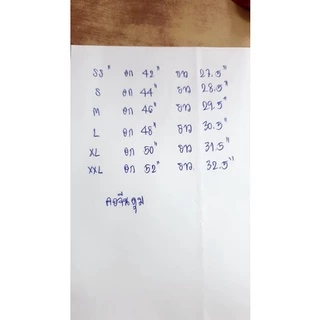 SS" อก 42" ยาว 27.5"
S อก 44" ยาว 28.5"
M อก 46" ยาว 29.5"
L อก 48" ยาว 30.5"
XL อก 50" ยาว 31.5"
XXL อก 52" ยาว 32.5"
คอจีนดุม